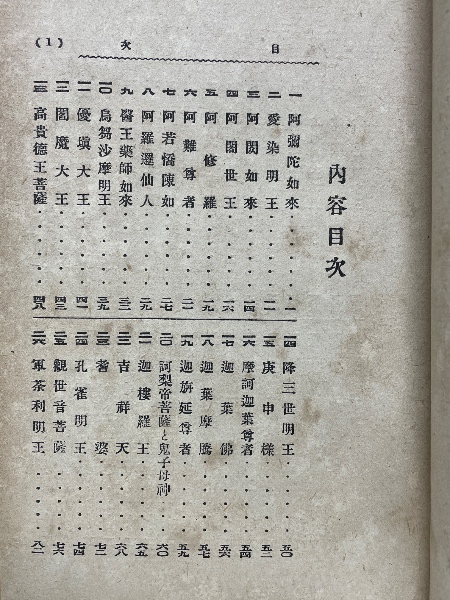 目次 (1)
內容目次
一 阿彌陀如來・・・・一
二 愛染明王・・・・一一
三 阿閦如來・・・・一四
四 阿闍世王・・・・一六
五 阿修羅・・・・一九
六 阿難尊者・・・・二一
七 阿若憍陳如・・・・二七
八 阿羅邏仙人・・・・二九
九 醫王藥師如來・・・・三二
一〇 烏芻沙摩明王・・・・三九
一一 優塡大王・・・・四一
一二 閻魔大王・・・・四三
一三 高貴德王菩薩・・・・四八
一四 降三世明王・・・・五〇
一五 庚申樣・・・・五二
一六 摩訶迦葉尊者・・・・五四
一七 迦葉佛・・・・五六
一八 迦葉摩騰・・・・五七
一九 迦旃延尊者・・・・五九
二〇 訶梨帝菩薩と鬼子母神 六〇
二一 迦樓羅王・・・・六五
二二 吉祥天・・・・六八
二三 耆婆・・・・七二
二四 孔雀明王・・・・七四
二五 觀世音菩薩・・・・七六
二六 軍荼利明王・・・・八一